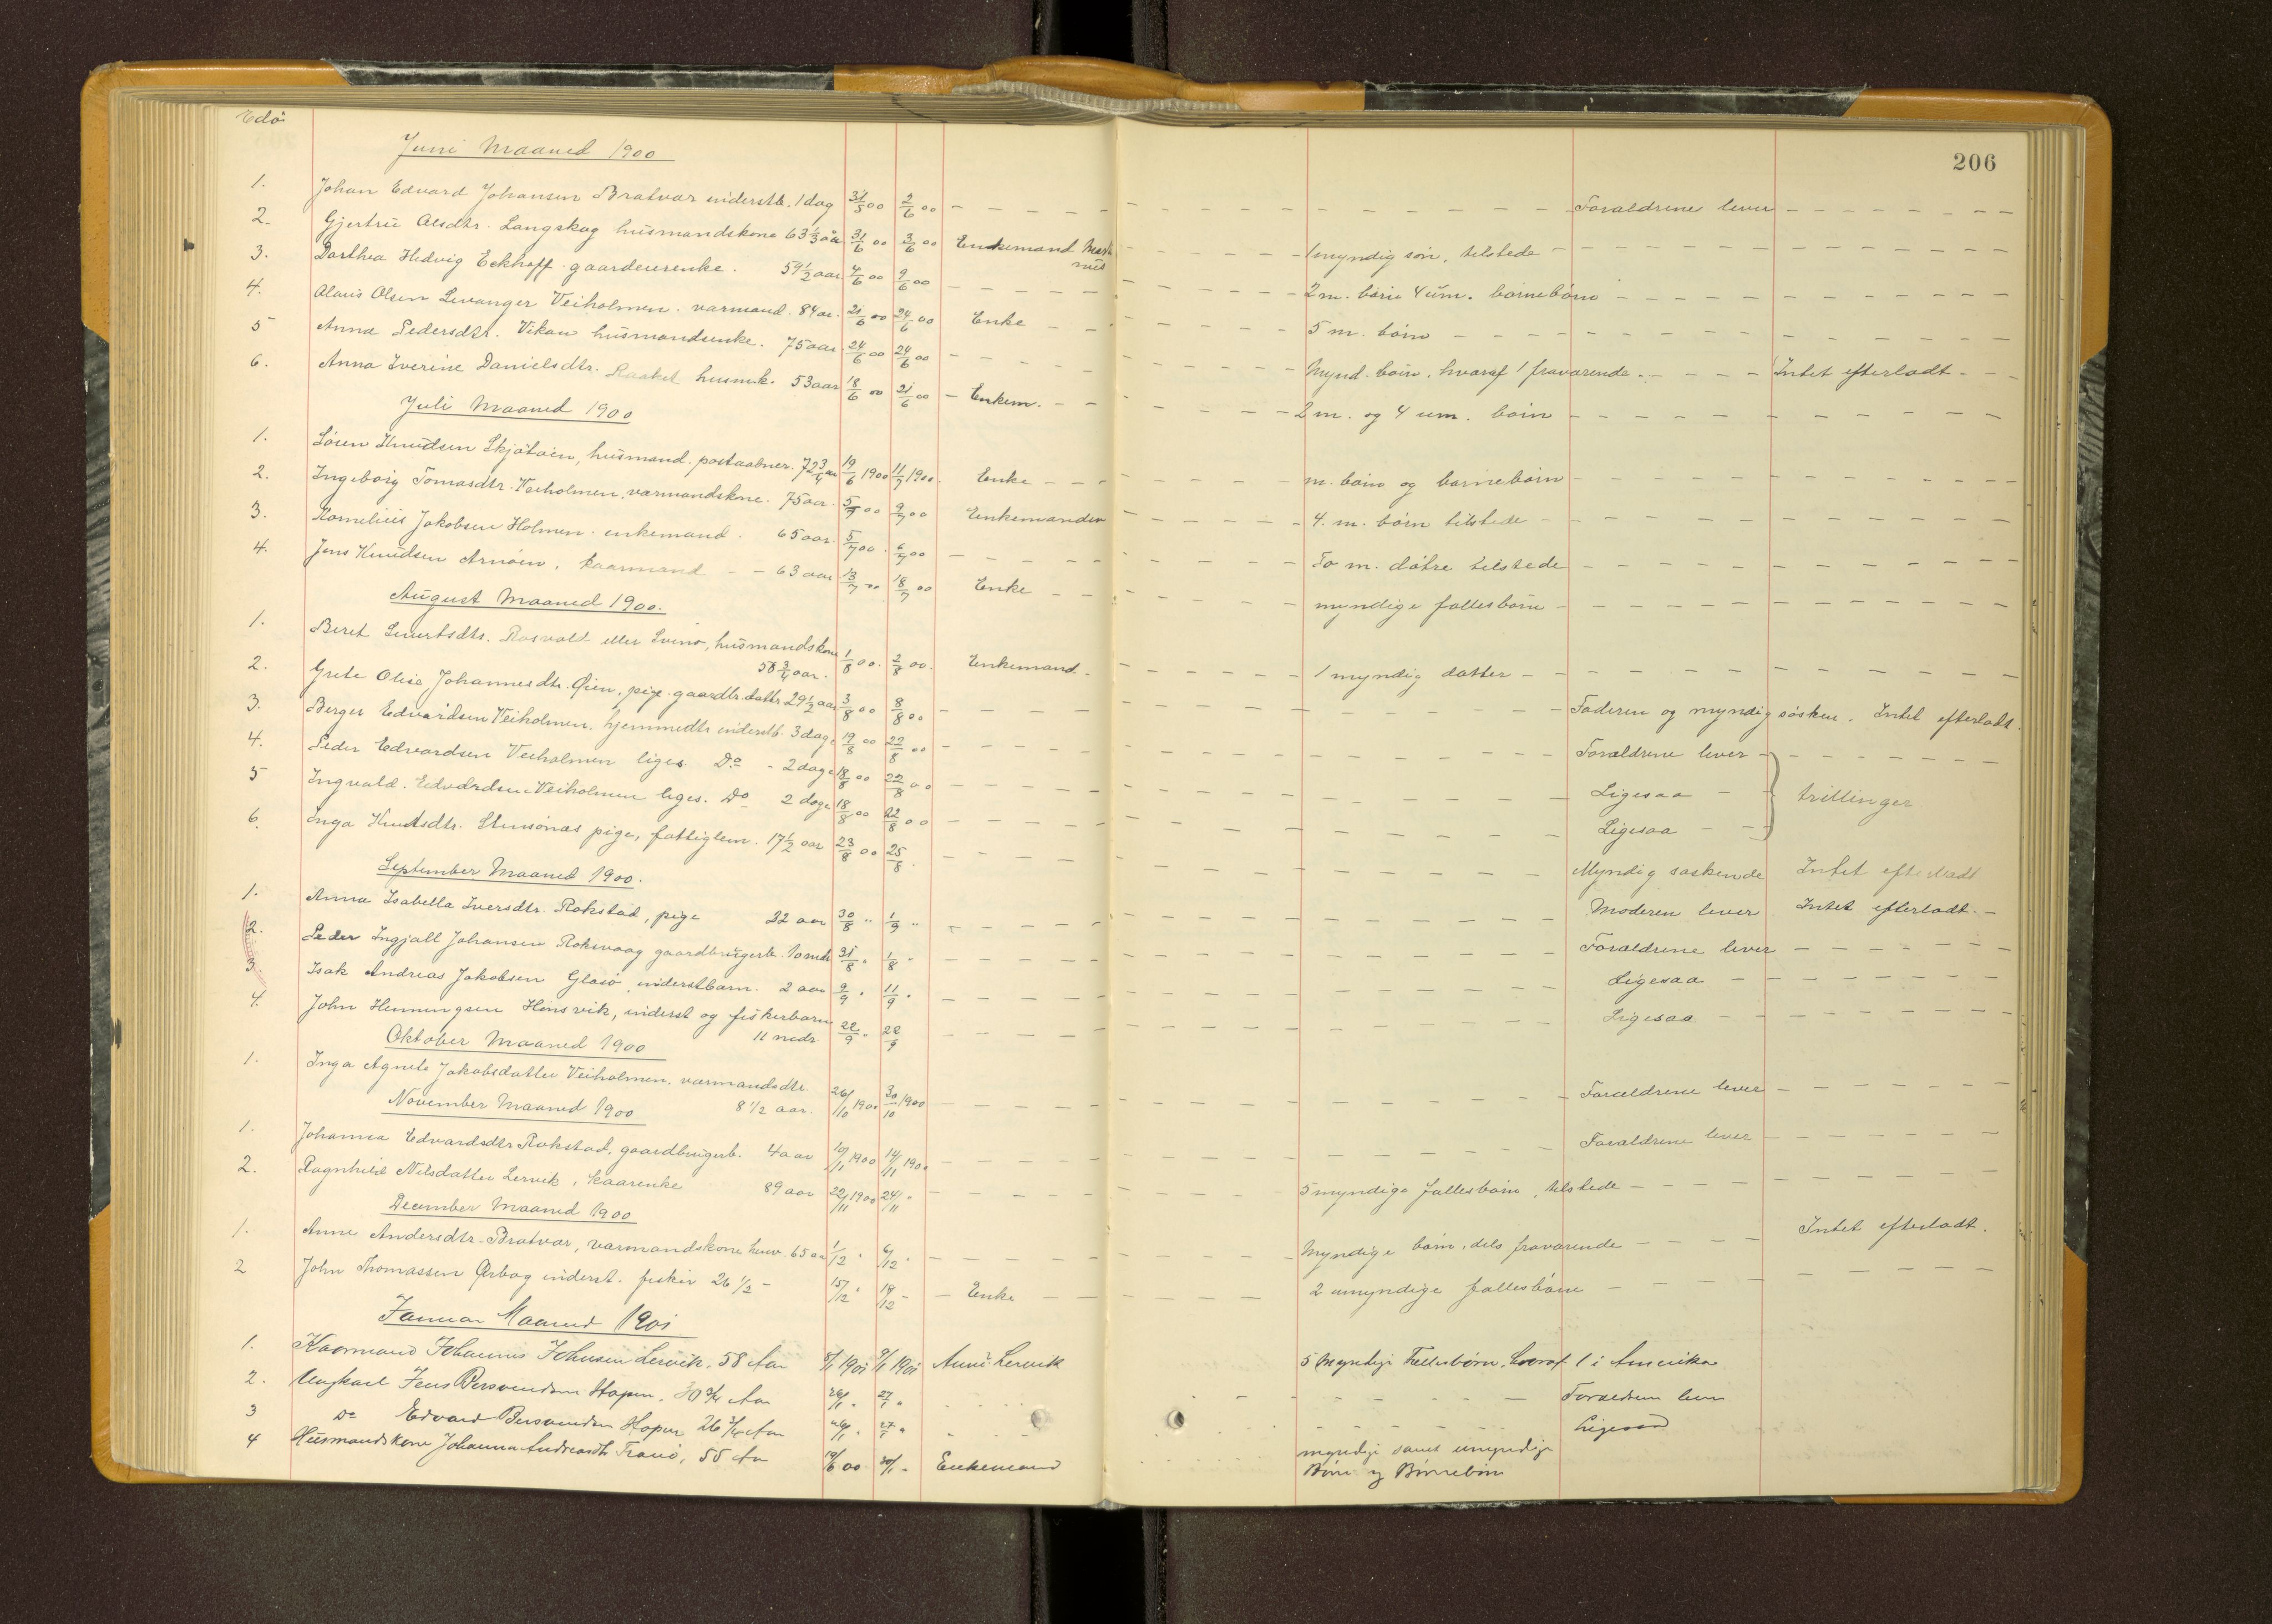 Edö
206
Juni Maaned 1900
1. Johan Edvard Johansen Bratvær inderstb. 1 dag 31/5 00 2/6 00 - - - Forældrene lever - - -
2. Gjertru Olsdtr. Langskag husmandskone 63 1/3 aar 31/6 00 3/6 00 Enkemand - 1 myndig søn, tilstede - - -
3. Dorthea Hedvig Eckhoff gaardeierenke. 59 1/2 aar 4/6 00 9/6 00 - - - 2 m. børn 4 um. børnebørn - - -
4. Olaus Olsen Levanger Veiholmen.værmand. 84 aar. 21/6 00 24/6 00 Enke - - 5 m. børn - - -
5 Anna Pedersdtr. Vikan husmandsenke. 75 aar 24/6 00 24/6 00 - - - Mynd. børn, hvoraf 1 fraværende - - - Intet efterladt - -
6. Anna Iverine Danielsdtr. Raaket husmk. 53 aar 18/6 00 21/6 00 - Enkem. - - 2 m. og 4 um. børn - - -
Juli Maaned 1900
1. Søren Knudsen Skjøtøien, husmand. postaabner. 72 3/4 aar 19/6 1900 11/7 1900. Enke - - - m. børn og børnebørn - - -
2. Ingeborg Tomasdtr. Veiholmen, værmandskone. 75 aar. 5/7 00 9/7 00 Enkemanden - 4. m. børn tilstede - - -
3. Kornelius Jakobsen Holmen. enkemand. 65 aar. 5/7 00. 6/7 00 - - - To m. døtre tilstede - - -
4. Jens Knudsen Arnøien, kaarmand - - 63 aar 13/7 00 18/7 00 Enke - - myndige fællesbørn - - -
August Maaned 1900.
1. Beret Sivertsdtr. Rosvold eller Svinø, husmandskone
58 3/4 aar. 1/8 00. 2/8 00. Enkemand. - 1 myndig datter - - -
2. Grete Olise Johannesdtr. Øien, pige gaardbr. dattr 29 1/2 aar 3/8 00 8/8 00 - - - Faderen og myndig søsken. Intet efterladt.
3. Berger Edvardsen Veiholmen, hjemmedtr inderstb. 3 dage 19/8 00 22/8 00 - - - Forældrene lever - - -
4. Peder Edvardsen Veiholmen liges. Do - 2 dage 18/8 00 22/8 00 - - - Ligesaa - trillinger
5 Ingvald. Edvardsen Veiholmen liges. Do 2 dage 18/8 00 22/8 00 - - - Ligesaa - -
6. Inga Knutsdtr. Stensønes pige, fattiglem. 17 1/2 aar 23/8 00 25/8. - - - Myndig søskende Intet efterladt
September Maaned 1900.
1. Anna Isabella Iversdtr. Rokstad, pige 22 aar 30/8 " 1/9 " - - - Moderen lever Intet efterladt. -
2. Peder Ingjall Johansen Rokvaag gaardbrugerb. 10 mdr 31/8 " 1/8 " - - - Forældrene lever - - -
3. Isak Andreas Jakobsen Glasø inderstbarn. 2 aar 9/9 " 11/9 " - - - Ligesaa - - -
4. John Henningsen Hinsvik, inderst og fiskerbarn
11 mdr 22/9 " 28/9 - - - Ligesaa - - -
Oktober Maaned 1900
1. Inga Agnete Jakobsdatter Veiholmen, værmandsdtr.
8 1/2 aar. 26/10 1900 30/10 1900 - - - Forældrene lever - - -
November Maaned 1900
1. Johanna Edvardsdtr Rokstad, gaardbrugerb. 4 aar 10/11 1900 14/11 1900 - - - Forældrene lever - - -
2. Ragnhild Nilsdatter Lervik, kaarenke 89 aar 22/11 1900 24/11 " - - - 5 myndige fællesbørn, tilstede - - -
December Maaned 1900
1. Anne Andersdtr. Bratvær, værmandskone 65 aar 1/12 " 6/12 " - - - Myndige børn, dels fraværende - - - Intet efterladt.
2 John Thomassen Ørbog inderst. fisker 26 1/2 - 15/12 " 19/12 - - Enke - - 2 umyndige fællesbørn - - -
Januar Maaned 1901
1. Kaarmand Johannes Johnsen Lervik, 58 Aar 8/1 1901 9/1 1901 Anne Lervik 5 Myndige Fællesbørn, hvoraf 1 i Amerika
2. Ungkarl Jens Hopen, 30 3/4 Aar 26/1 " 27/1 " - - - Forældrene lever
3 Do Edvard Hopen 26 Aar 26/1 " 27/1 " - - - Ligesaa
4 Husmandskone Johanna Andreasdtr Tranø, 55 Aar 19/6 00 30/1 " Enkemand myndige samt umyndige
Børn og Børnebørn